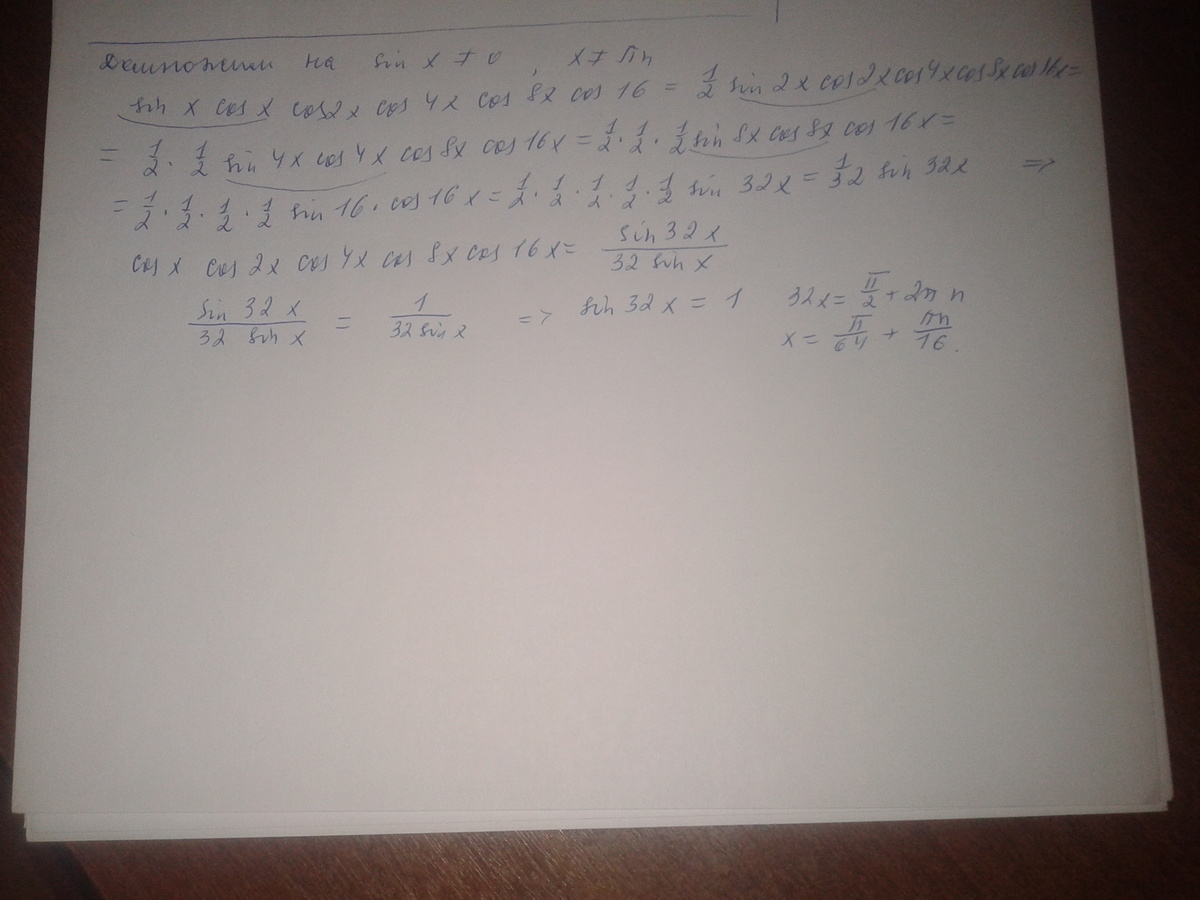 Домножим на sin x ≠ 0, x ≠ πn
sin x cos x cos2x cos 4x cos 8x cos 16 = 1/2 sin 2x cos 2x cos 4x cos 8x cos 16x =
= 1/2 · 1/2 sin 4x cos 4x cos 8x cos 16x = 1/2 · 1/2 · 1/2 sin 8x cos 8x cos 16x =
= 1/2 · 1/2 · 1/2 · 1/2 sin 16 · cos 16x = 1/2 · 1/2 · 1/2 · 1/2 · 1/2 sin 32x = 1/32 sin 32x =>
cos x cos 2x cos 4x cos 8x cos 16x = sin 32x / 32 sin x
sin 32x / 32 sin x = 1 / 32 sin x => sin 32x = 1 32x = π/2 + 2πn
x = π/64 + πn/16.